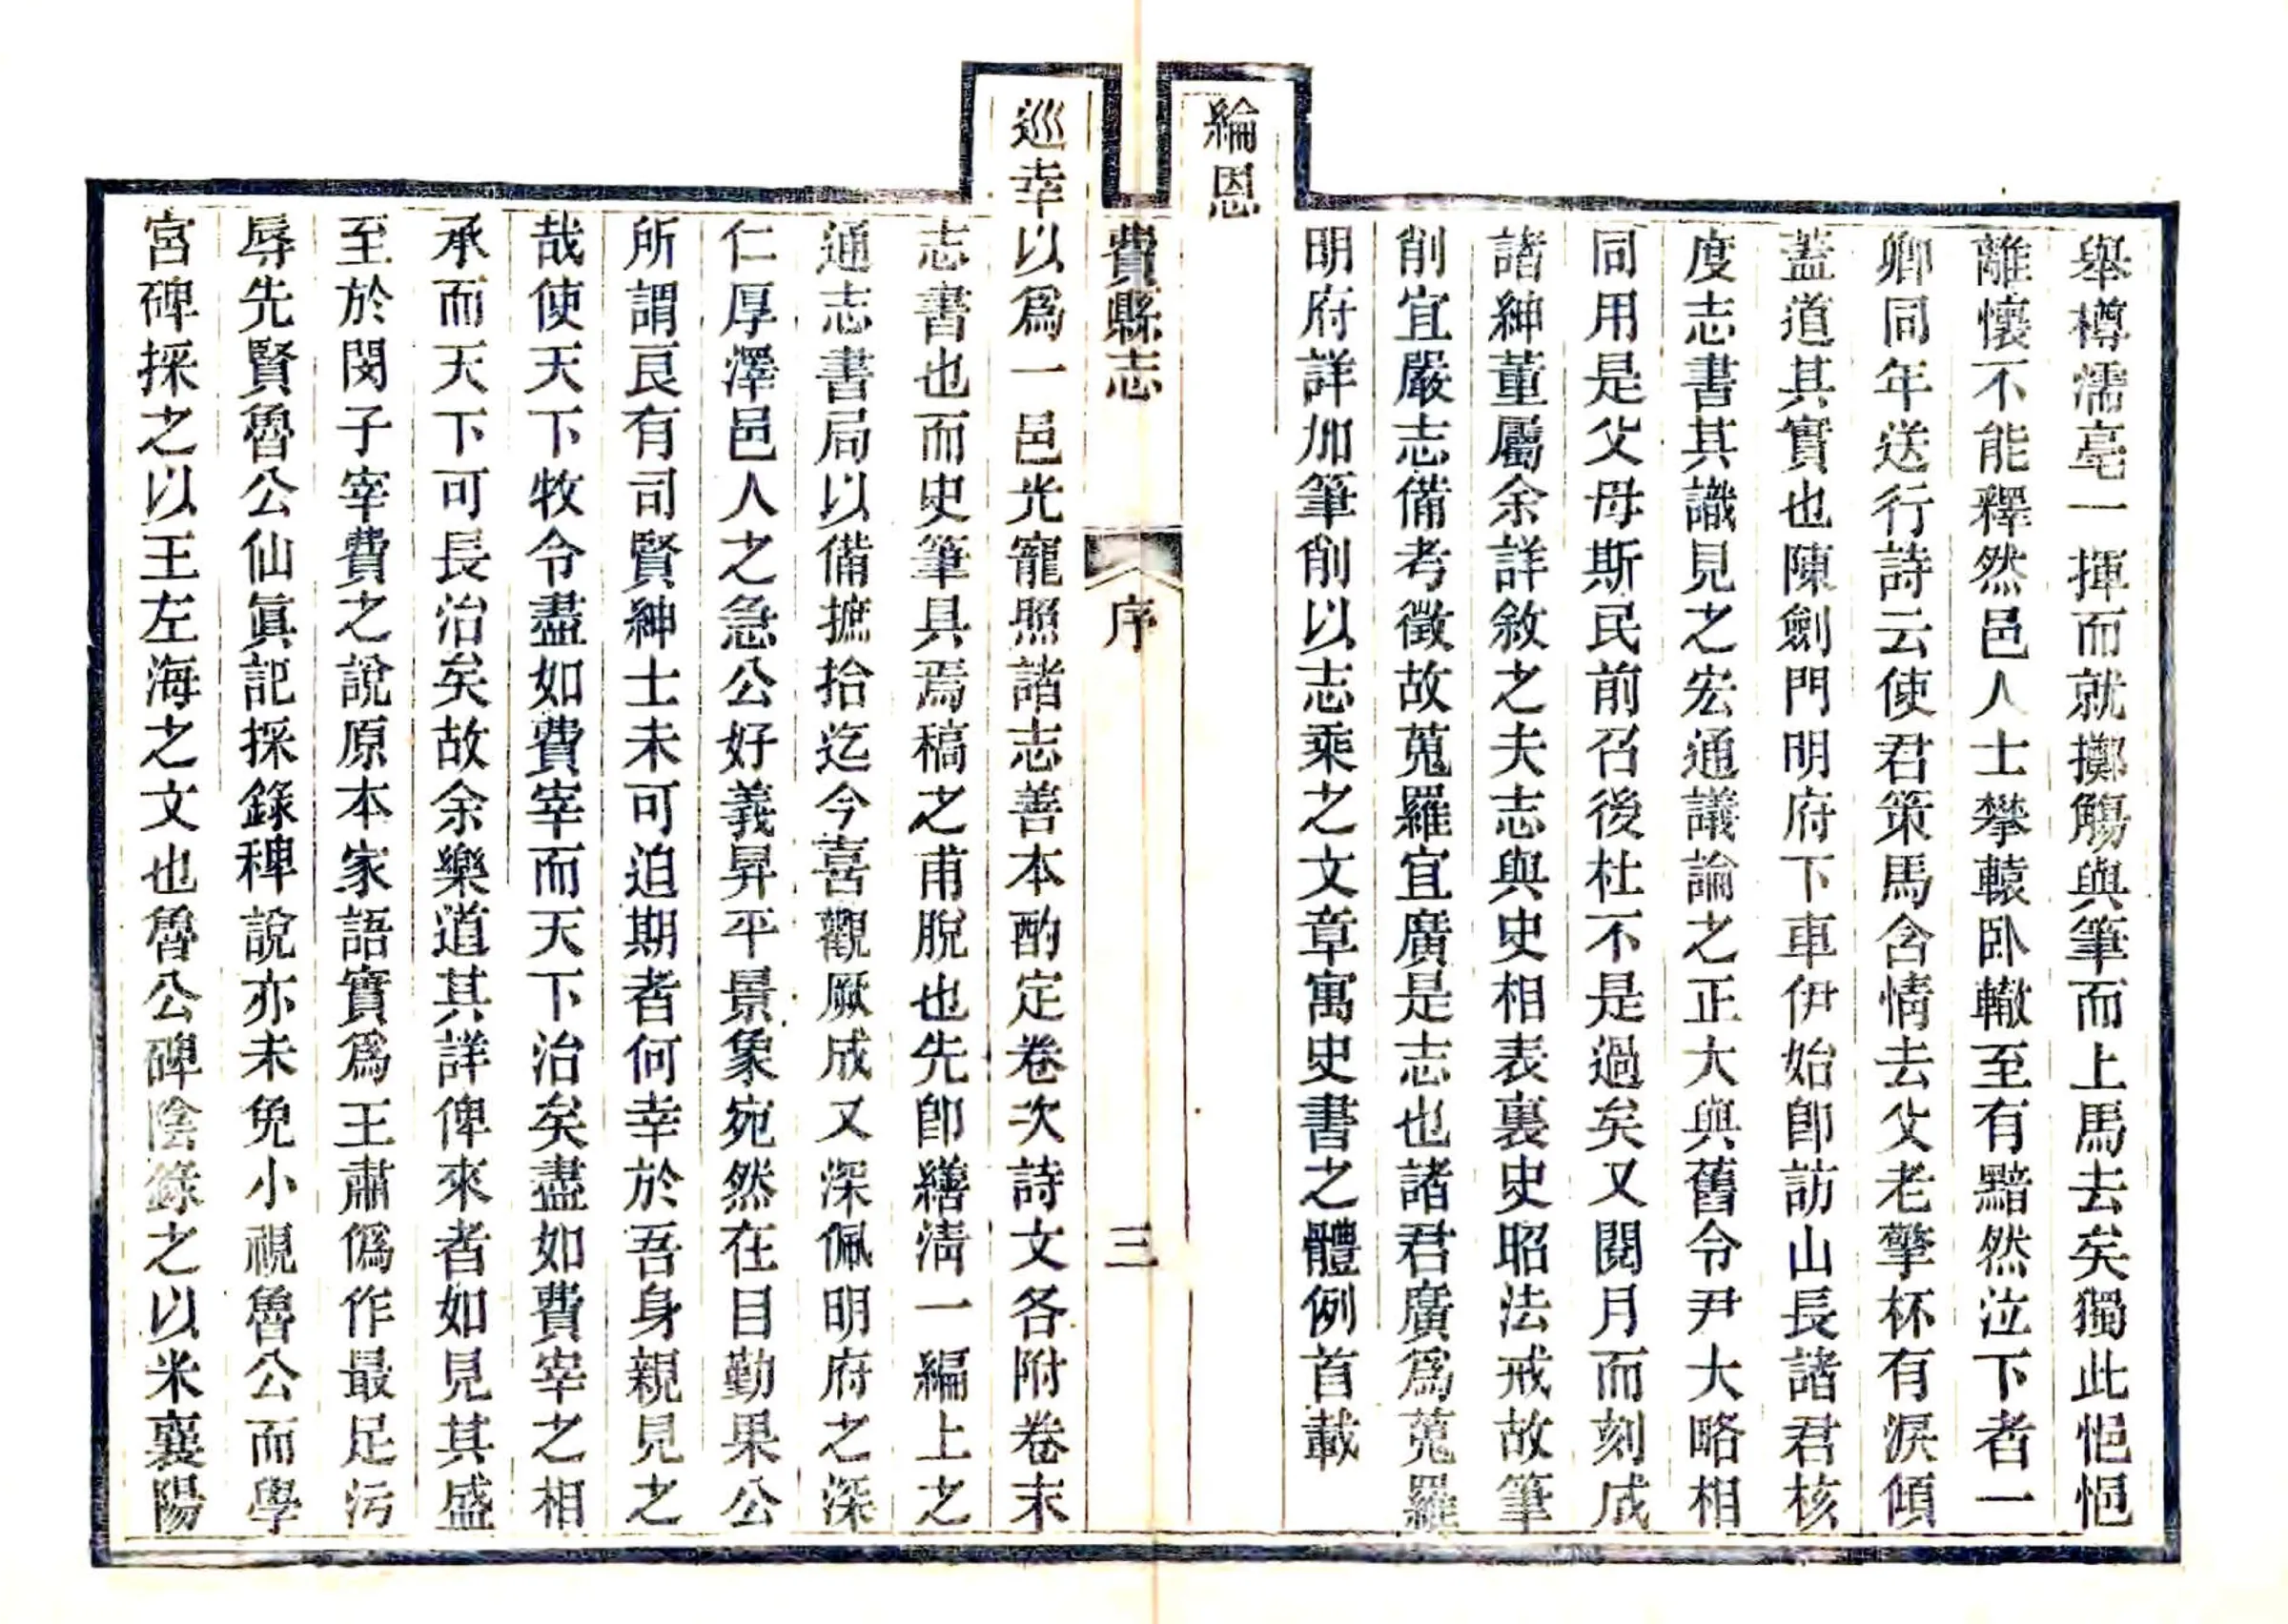 舉樽濡毫一揮而就擲觴與筆而上馬去矣獨此悒悒
離懷不能釋然邑人士攀轅臥轍至有黯然泣下者一
卿同年送行詩云使君策馬含情去父老擎杯有淚傾
蓋道其實也陳劍門明府下車伊始卽訪山長諸君核
度志書其識見之宏通議論之正大與舊令尹大略相
同用是父母斯民前召後杜不是過矣又閱月而刻成
諸紳董屬余詳敘之夫志與史相表裏史昭法戒故筆
削宜嚴志備考徵故蒐羅宜廣是志也諸君廣爲蒐羅
明府詳加筆削以志乘之文章寓史書之體例首載
綸恩
費縣志
序
三
巡幸以爲一邑光寵照諸志善本酌定卷次詩文各附卷末
志書也而史筆具焉稿之甫脫也先卽繕淸一編上之
通志書局以備摭拾迄今喜觀厥成又深佩明府之深
仁厚澤邑人之急公好義昇平景象宛然在目勤果公
所謂良有司賢紳士未可迫期者何幸於吾身親見之
哉使天下牧令盡如費宰而天下治矣盡如費宰之相
承而天下可長治矣故余樂道其詳俾來者如見其盛
至於閔子宰費之說原本家語實爲王肅僞作最足污
辱先賢魯公仙眞記採錄稗說亦未免小視魯公而學
宮碑採之以王左海之文也魯公碑陰錄之以米襄陽